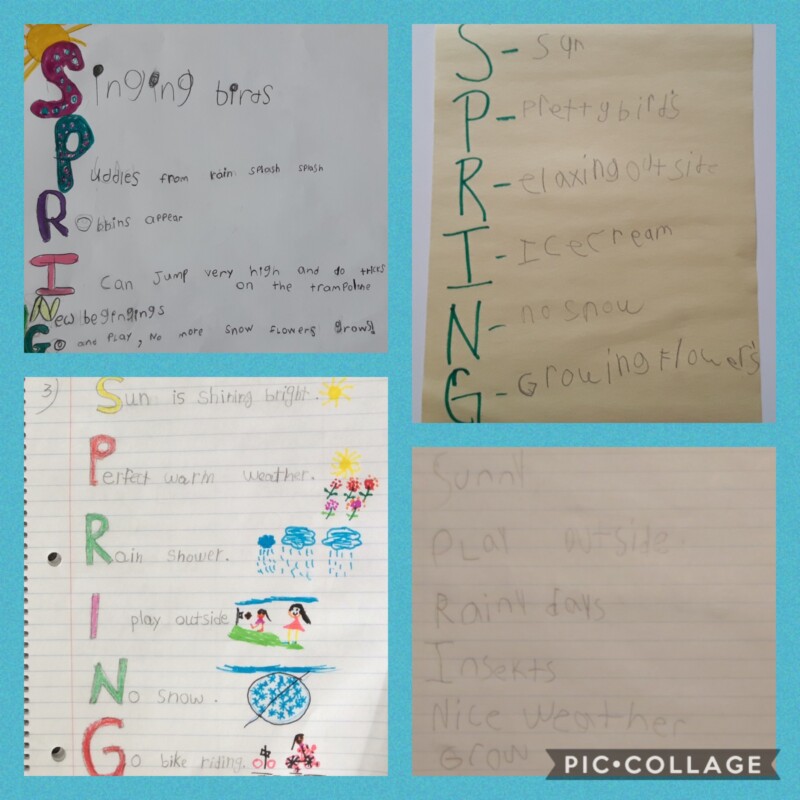 Singing birds
Puddles from rain splash splash
Robbins appear
I Can Jump very high and do tricks
on the trampoline
New begingings
Go and Play, No more snow flowers grow
S- Sun
P- Pretty birds
R- elaxing outside
I- Icecream
N- no snow
G- Growing Flowers
3) Sun is shining bright.
Perfect warm weather.
Rain shower.
I play outside
No snow.
Go bike riding.
Sunny
Play outside.
Rainy days
Insekts
Nice weather
Grow
PIC•COLLAGE